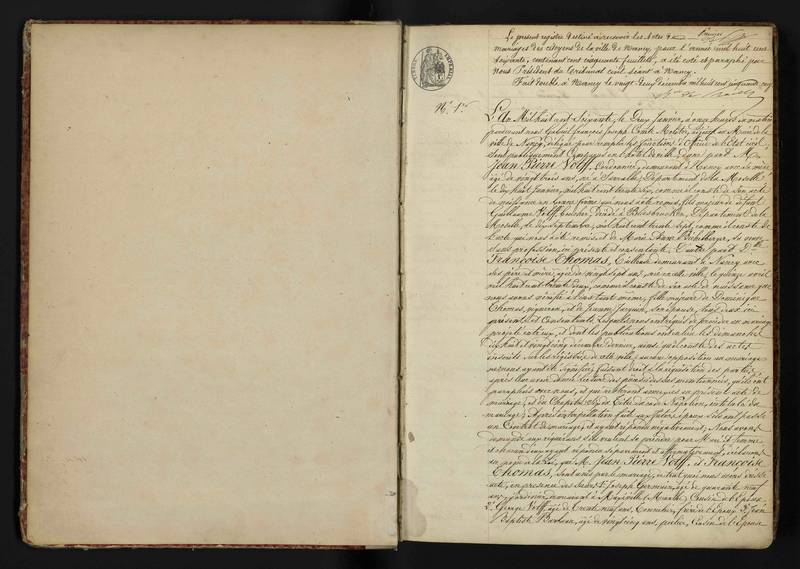 Le présent registre destiné à recevoir les Actes de
mariages des citoyens de la ville de Nancy, pour l'année mil huit cent
soixante, contenant cent cinquante feuillets, a été coté et paraphé par
nous Président du tribunal civil séant à Nancy.
Fait double à Nancy le vingt deux décembre mil huit cent cinquante neuf
N° 1er
L'An Mil huit cent soixante, le deux Janvier, à onze heures du matin
pardevant nous Gabriel François Joseph Comte adjoint au Maire de la
ville de Nancy, délégué pour remplir les fonctions d'Officier de l'état civil
sont publiquement comparus en l'hôtel de ville d'une part M.
Jean Pierre Wolff, Cordonnier, demeurant à Nancy
âgé de vingt trois ans, né à Département de la Moselle
le dix huit Janvier, mil huit cent trente six, comme il conste de son acte
de naissance en bonne forme qui nous a été remis, fils majeur de défunt
Guillaume Wolff, décédé à Département de la
Moselle, le dix septembre, mil huit cent trente sept, comme il conste de
l'acte qui nous a été remis, et de Marie Anne sa veuve
sans profession, ici présente et consentante, D'autre part D.lle
Françoise Thomas, demeurant à Nancy avec
ses père et mère, âgée de vingt sept ans, née en cette ville, le avril
mil huit cent trente deux, comme il conste de son acte de naissance que
nous avons vérifié à l'instant même, fille majeure de Dominique
Thomas, vigneron, et de Jeanne Jacquin, son épouse, tous deux ici
présents et consentants. Lesquels nous ont requis de procéder au mariage
projeté entre eux, et dont les publications ont eu lieu les dimanches
dix huit et vingt cinq décembre dernier, ainsi qu'il conste des actes
inscrits sur les registres de cette ville; aucune opposition au mariage
ne nous ayant été signifiée, faisant droit à la réquisition des parties
après leur avoir donné lecture des pièces ci dessus mentionnées, qu'ils ont
paraphées avec nous, et qui resteront annexées au présent acte de
mariage, et du Chapitre Six du Code Napoléon, intitulé du
mariage; Après interpellation faite aux futurs époux s'ils ont passé
un Contrat de mariage; et ayant répondu négativement; Nous avons
demandé aux requérants s'ils veulent se prendre pour Mari et Femme
et chacun d'eux ayant répondu séparément et affirmativement, déclarons
au nom de la Loi, que M. Jean Pierre Wolff, et Françoise
Thomas, sont unis par le mariage, de tout quoi nous avons dressé
acte, en présence des Sieurs 1° Joseph Germain, âgé de quarante neuf
ans, jardinier, demeurant à Maxéville (Meurthe) Cousin de l'épouse
2° George Wolff, âgé de trente neuf ans, frère de l'époux 3° Jean
Baptiste âgé de vingt cinq ans, Cousin de l'épouse